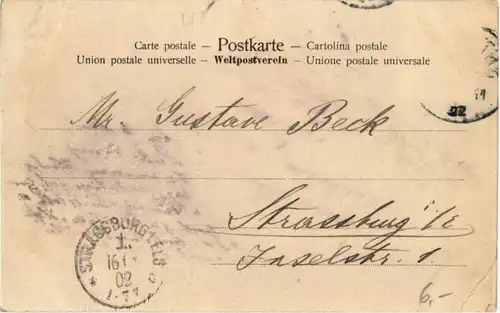 Carte postale – Postkarte – Cartolina postale
Union postale universelle – Weltpostverein – Unione postale universale
Mr. Gustave Beck
Strassburg i/E
Inselstr. 1
STRASSBURG
16
02
02
6,-